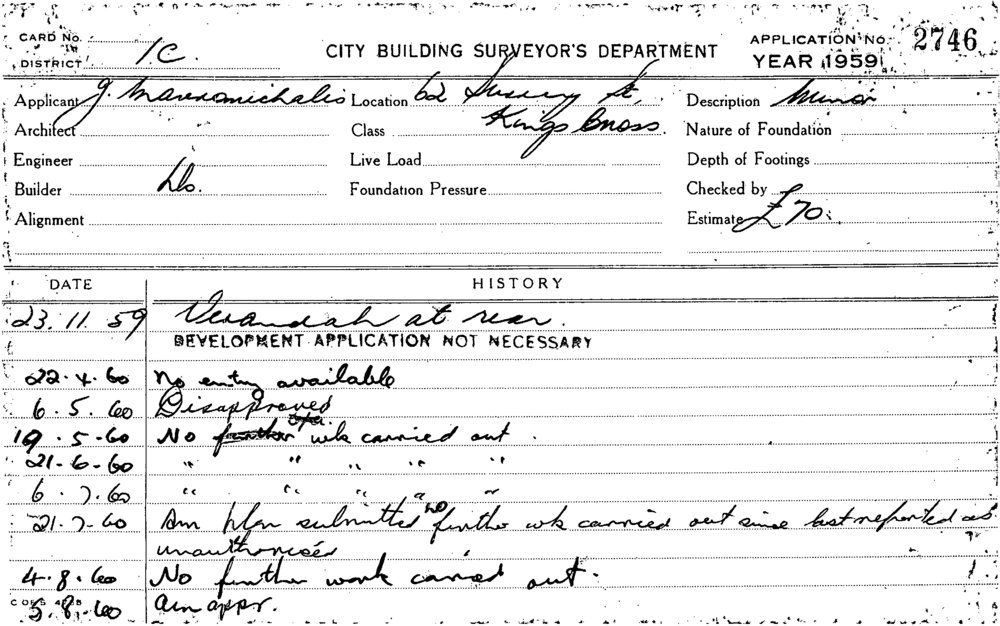 CARD No.
DISTRICT 1C.
CITY BUILDING SURVEYOR'S DEPARTMENT
APPLICATION No. 2746
YEAR 1959
Applicant J. Mavromichalis Location 62 Surrey St, Description Minor
Kings Cross.
Architect Class Nature of Foundation
Engineer Live Load Depth of Footings
Builder Do. Foundation Pressure Checked by
Alignment Estimate £70
DATE HISTORY
23.11.59 Verandah at rear.
DEVELOPMENT APPLICATION NOT NECESSARY
22.4.60 No entry available
6.5.60 Disapproved
19.5.60 No further wk carried out.
21-6-60 " " " " "
6.7.60 " " " " "
21-7-60 Am plan submitted no further wk carried out since last reported as
unauthorised
4.8.60 No further work carried out.
5.8.60 Am appr.